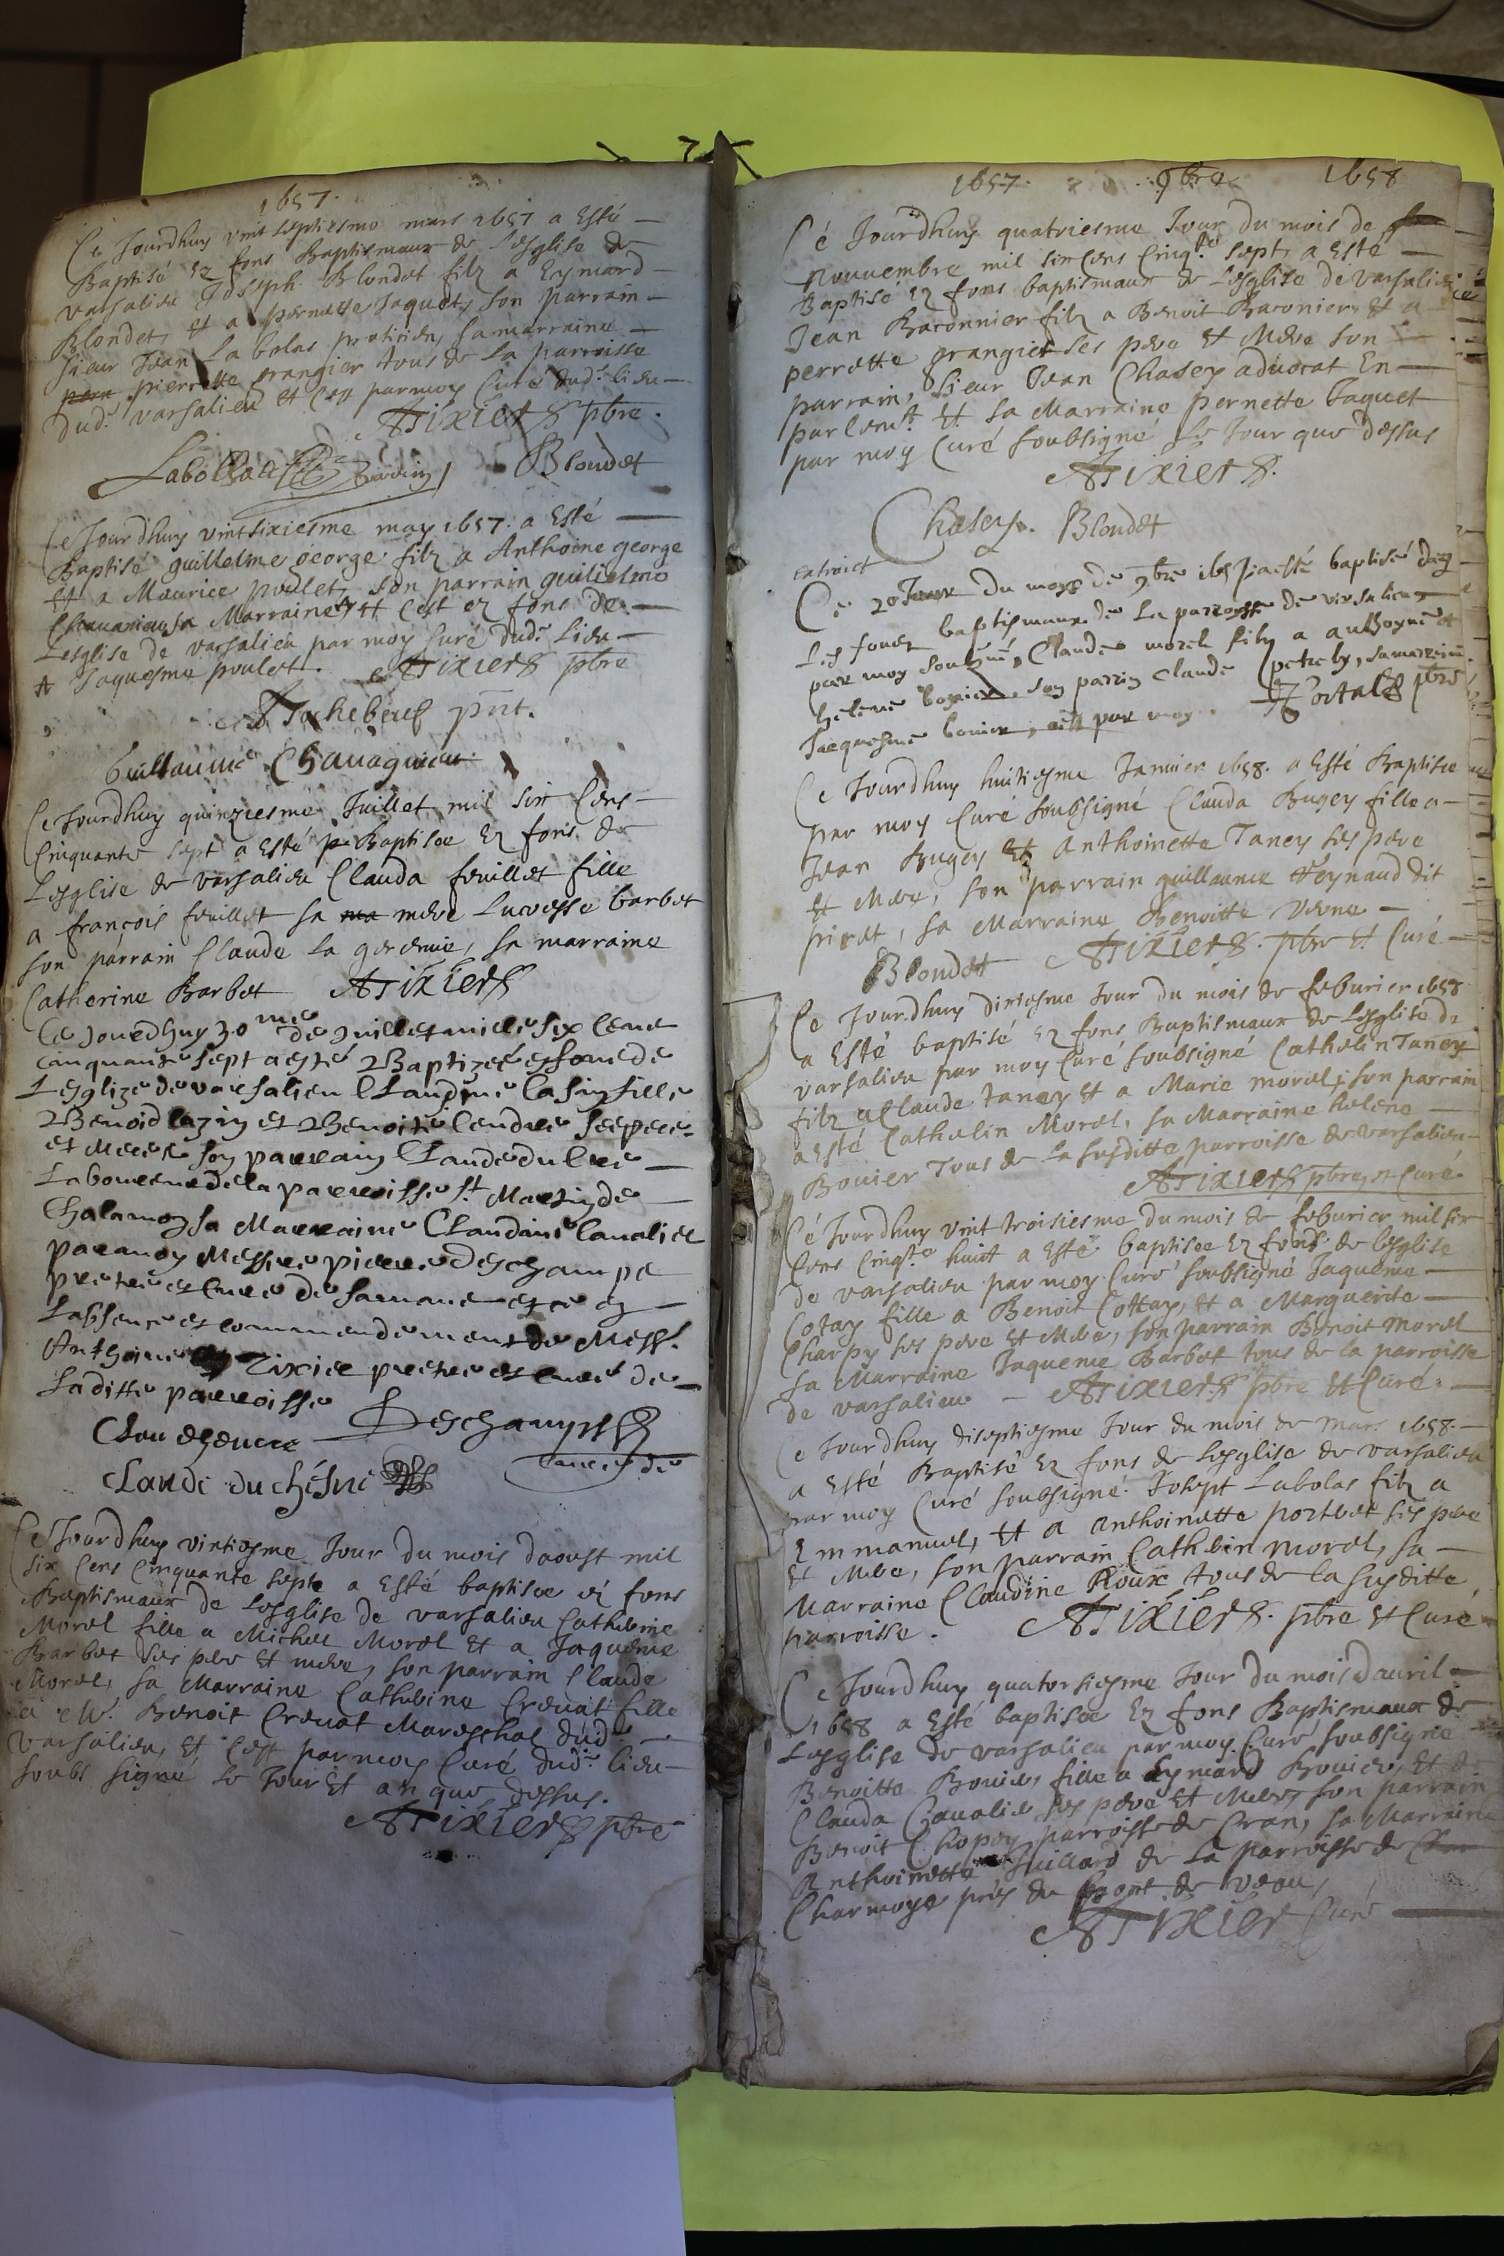 1657.
Ce Jourdhuy vint septiesme mars 1657 a Esté
Baptisé ez fons Baptismaux de Lesglise de
varsalieu Joseph Blondet filz a Eymard
Blondet, et a pernette Jaquet, son parrain
sieur Jean Labolas praticien, sa marraine
pierrette grangier tous de la parroisse
dud. varsalieu et Cest par moy Curé dud. lieu
ATixier pbre.
Blondet
Ce Jourdhuy vintsixiesme may 1657. a Esté
Baptisé guillelme george filz a Anthoine george
Et a Maurice poulet, son parrain guilielme
sa Marraine Et Cest ez fons de
Lesglise de varsalieu par moy Curé dud. Lieu
Jaquesme poulet. ATixier pbre
pnt.
Guillaume Chavagnieu
Ce Jourdhuy quinziesme Juillet mil six Cens
Cinquante sept a Esté Baptisee Ez fons de
Lesglise de varsalieu Clauda feuillet fille
a françois feuillet sa mere Lucresse barbet
son parrain Claude la , sa marraine
Catherine Barbet ATixier
Ce Jourdhuy 30me de Juillet mille six Cent
cinquante sept a esté Baptizeé es fons de
Lesglize de varsalieu Claudine Casin fille
Benoid Cazin et Benoite Cendre ses pere
et Mere son parrain Claude du
Laboureur de la parroisse st Martin de
Chalamon sa Marraine Claudine Cavalier
par moy Messire pierre deschamps
pretre et Curé de et ce en
Labsence et commendement de Mess.
Anthoine Tixier pretre et Curé de
Laditte parroisse
Deschamps
Claude duchésne
Ce Jourdhuy vintiesme Jour du mois daoust mil
six Cens Cinquante sept a Esté baptisee ez fons
Baptismaux de Lesglise de varsalieu Catherine
Morel fille a Michel Morel Et a Jaqueme
Barbet ses pere Et mere, son parrain Claude
Morel, sa Marraine Catherine Crevat fille
a M. Benoit Crevat Mareschal dud.
varsalieu, Et Cest par moy Curé dud. lieu
soubs signé le Jour Et an que dessus.
ATixier pbre
1657. 9bre 1658
Cé Jourdhuy quatriesme Jour du mois de
Nouvembre mil six Cens Cinqte sept, a Esté
Baptisé Ez fons baptismaux de Lesglise de varsalieu
Jean Baronnier filz a Benoit Baronier, Et a
perrette grangier ses pere Et Mere son
parrain, sieur Jean Chasey advocat En
parlemt. Et sa Marraine pernette Jaquet
par moy Curé soubsigné Le Jour que dessus
ATixier.
Chasey. Blondet
extraict
Ce 20 Jour du moys de 9bre 1657 a esté baptisé dans
Les fonds baptismaux de La parroisse de virsalieux
par moy soubzné, Claude morel filz a anthoyne et
helene bonier son parrin Claude , sa marreine
Jacquesme bonier, cest par moy. pbre
Ce Jourdhuy huitiesme Janvier 1658. a Esté Baptisee
par moy Curé soubsigné Clauda Bugey fille a
Jean Bugey Et Anthoinette Taney ses pere
Et Mere, son parrain guillaume Teynaud dit
, sa Marraine Benoitte Verne
Blondet ATixier. pbre Et Curé
Ce Jourdhuy dixiesme Jour du mois de feburier 1658
a Esté baptisé Ez fons Baptismaux de Lesglise de
varsalieu par moy Curé soubsigné Cathelin Taney
filz a Claude taney Et a Marie morel, son parrain
a esté Cathelin Morel, sa Marraine helene
Bonier Tous de la susditte parroisse de varsalieu
ATixier pbre, et Curé
Cé Jourdhuy vint troisiesme du mois de feburier mil six
Cens Cinqte huitt a Esté baptisee Ez fons de lesglise
de varsalieu par moy Curé soubsigné Jaqueme
Cotay fille a Benoit Cottay, Et a Marguerite
Charpy ses pere Et Mere, son parrain Benoit Morel
sa Marraine Jaqueme Barbet tous de la parroisse
de varsalieu ATixier pbre Et Curé.
Ce Jourdhuy diseptiesme Jour du mois de mars 1658.
a Esté Baptisé Ez fons de lesglise de varsalieu
par moy Curé soubsigné. Josept Labolas filz a
Emmanuel, Et a Anthoinette portvet ses pere
Et Mere, son parrain Cathelin morel, sa
Marraine Claudine Roux tous de la susditte
parroisse. ATixier. pbre Et Curé
Ce Jourdhuy quatorsiesme Jour du mois d'avril
1658 a Esté baptisée Ez fons Baptismaux de
Lesglise de varsalieu par moy Curé soubsigné
Benoitte Bonier, fille a Eymard Bonier, Et de
Clauda Cavalier ses pere Et Mere, son parrain
Benoit Chopey parroisse de Cran, sa Marraine
Anthoinette Juillard de La parroisse de
Charnoye prés du pont de veau,
ATixier Curé